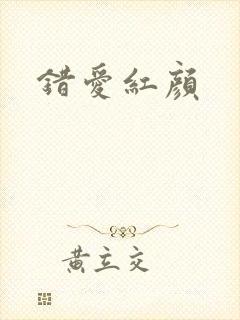 錯愛紅顏
黃立交